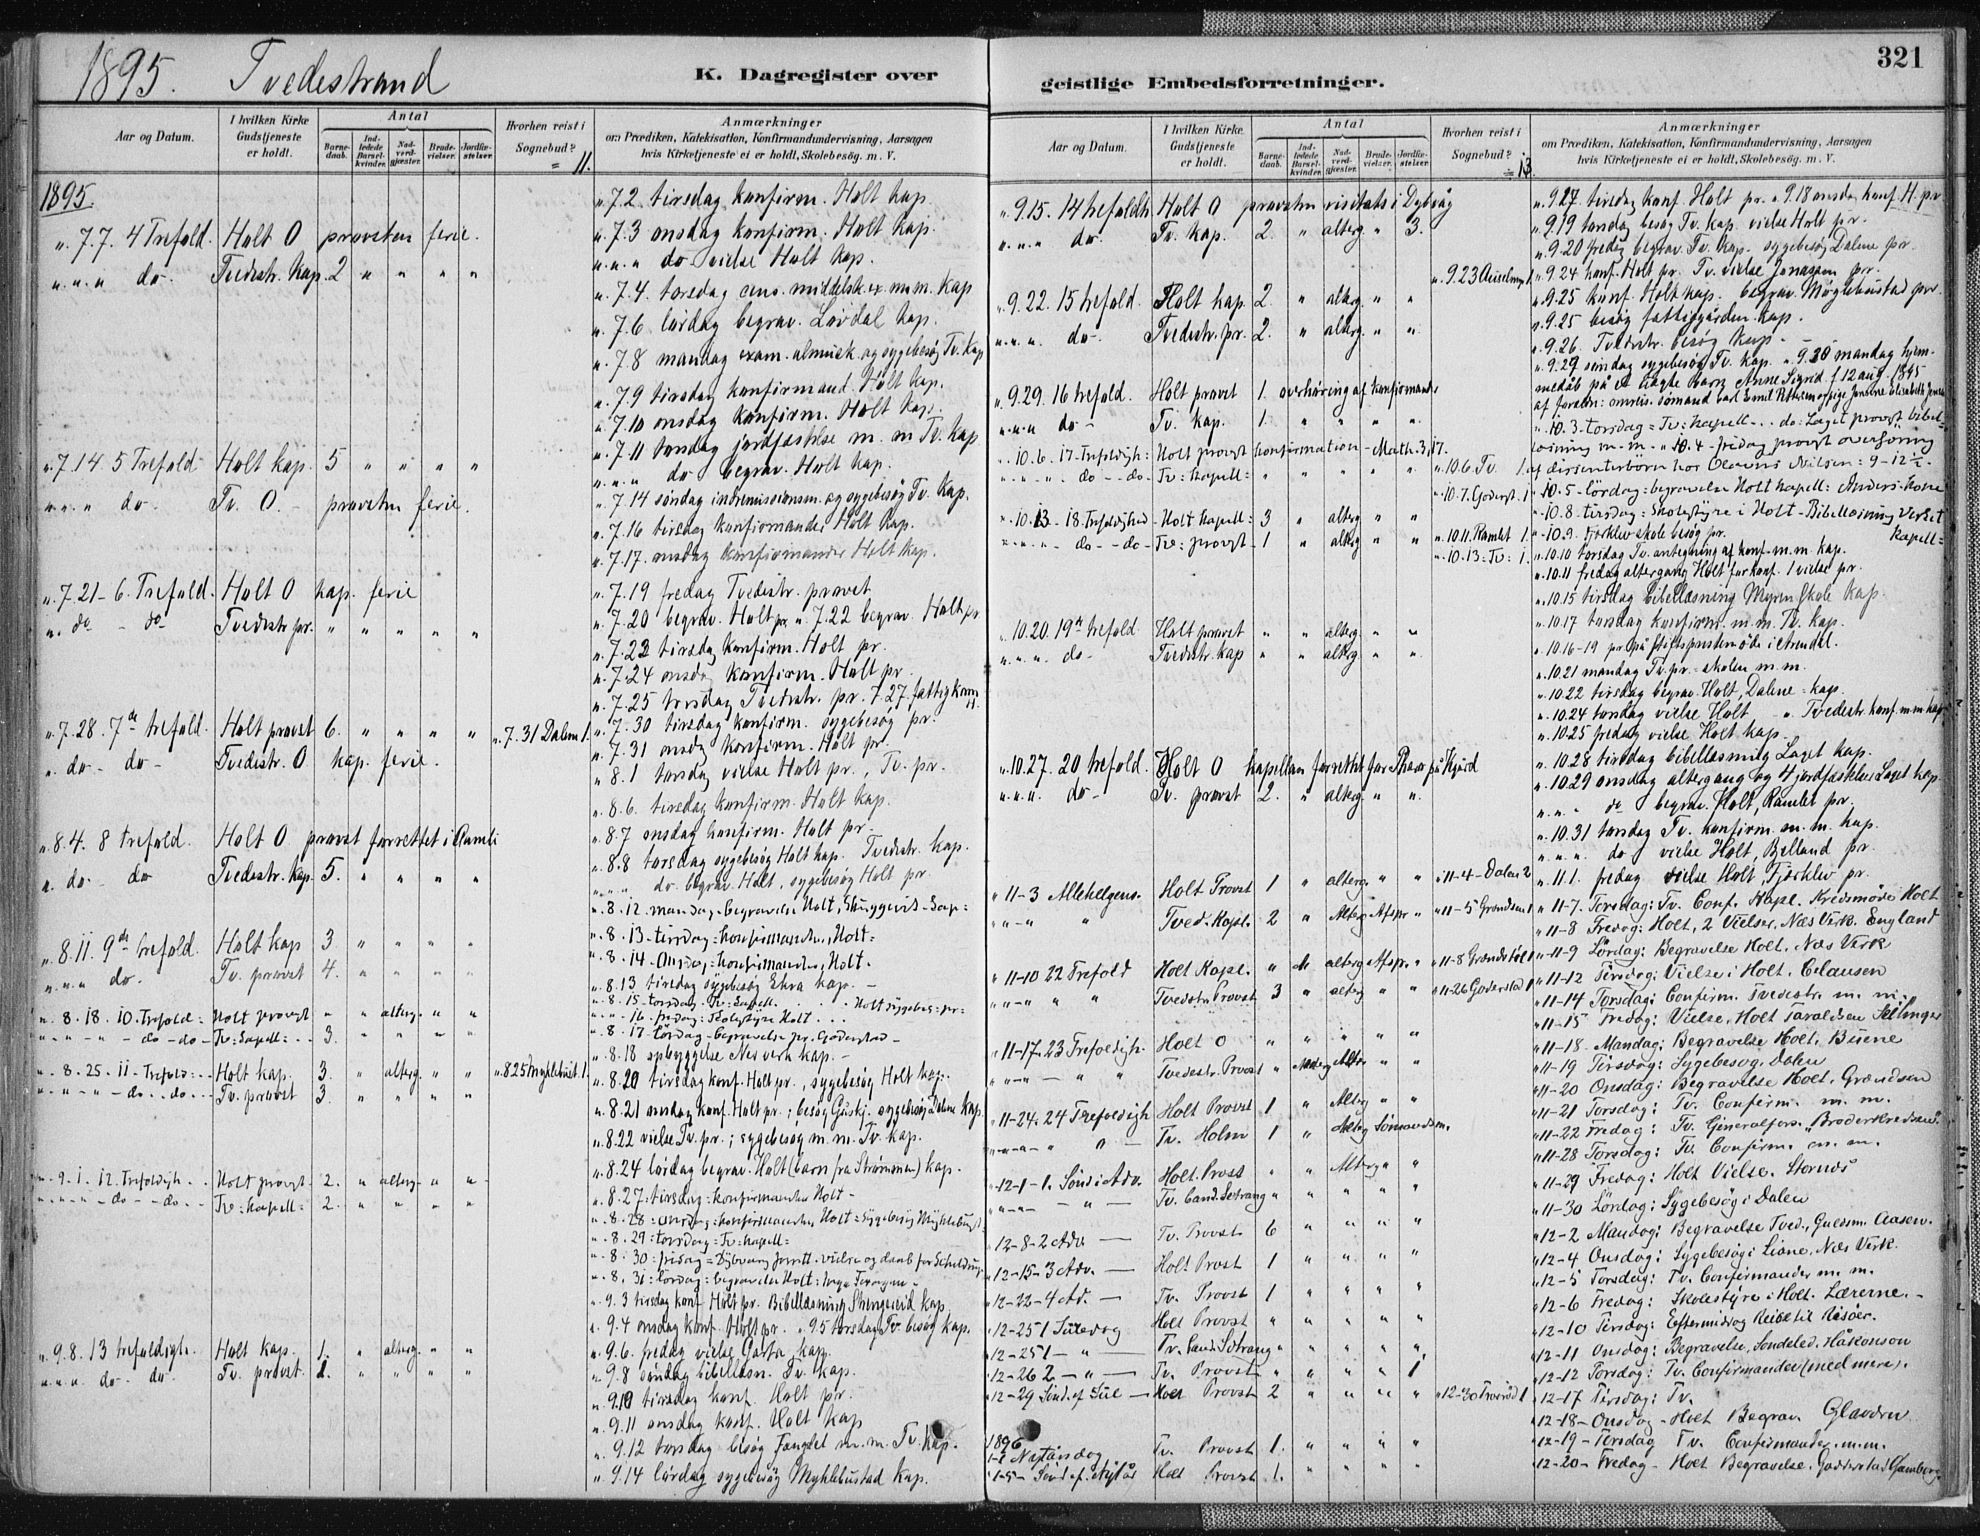 1895. Tvedestrand
K. Dagregister over
geistlige Embedsforretninger.
321
Aar og Datum.
I hvilken Kirke Gudstjeneste er holdt.
Antal
Barnedaab.
Indledede Barselkvinder.
Nadverdgjæster.
Brudevielser.
Jordfæstelser.
Hvorhen reist i Sognebud?
= 11.
Anmærkninger
om Prædiken, Katekisation, Konfirmandundervisning, Aarsagen
hvis Kirketjeneste ei er holdt, Skolebesøg m. V.
1895.
" 7.7. 4 Trefold. Holt O provsten ferie.
" " " do. Tvedestr. kap. 2 " " " "
" 7.14 5 Trefold Holt kap. 5 " " " "
" " " do Tv. O. - provsten ferie.
" 7.21 - 6. Trefold. Holt O kap. ferie
" do - do Tvedestr pr. " " " " "
" 7.28. 7de trefold. Holt provst 6. " " " " " 7.31 Dalen 1.
" do - do - Tvedestr. O kap. ferie.
" 8.4. 8 trefold. Holt O provst forrettet i Aamli
" do- do Tvedestr. kap. 5. " " " "
" 8.11. 9de trefold. Holt kap 3. " " " "
" " " do. Tv. provst 4. " " " "
" 8.18. 10. Trefold = Holt provst " " alterg. " "
" " " - do - do - Tv: kapell: .. 3. " " " "
" 8.25. 11 - Trefold: .. Holt kap. 3. " alterg. " " " 8.25 Myklebust. 1.
" " " - do .. do .. Tv. provst 3. " " " "
" 9.1. 12. Trefoldigh.. Holt provst. 2. " alterg. " "
" " " - do - - do.. Tv: kapell: 2. " " " "
" 9.8. 13 trefoldigh. Holt kap. 1. " alterg. " "
" " " do. do. Tv. provst. 1. " " " "
" 7.2. tirsdag konfirm. Holt kap.
" 7.3 onsdag konfirm. Holt kap.
" " " do vielse Holt kap.
" 7.4. torsdag cens. middelsk. ex. m. m. kap
" 7.6 lørdag begrav. Løvdal kap.
" 7.8 mandag exam. almuesk. og sygebesøg Tv. kap
" 7.9 tirsdag konfirmand. Holt kap.
" 7.10 onsdag konfirm. Holt kap.
" 7.11 torsdag jordfæstelse m. m Tv. kap
" " " do begrav. Holt kap.
" 7.14 søndag indremissionsm. og sygebesøg Tv. kap.
" 7.16 tirsdag konfirmander Holt kap.
" 7.17. onsdag konfirmander Holt kap.
" 7.19 fredag Tvedestr. provst
" 7.20 begrav. Holt pr. " 7.22 begrav. Holt pr
" 7.22 tirsdag konfirm. Holt pr.
" 7.24 onsdag konfirm. Holt pr.
" 7.25 torsdag Tvedestr. pr. 7.27 fattigkom
" 7.30 tirsdag konfirm. sygebesøg pr.
" 7.31 onsdg konfirm. Holt pr.
" 8.1 torsdag vielse Holt pr., Tv. pr.
" 8.6. tirsdag konfirm. Holt kap.
" 8.7 onsdag konfirm. Holt pr.
" 8.8 torsdag sygebesøg Holt kap. Tvedestr. kap.
" " " do begrav. Holt, sygebesøg Holt pr
" 8.12. mandag - begravelse Holt,
" 8.13 - tirsdag = konfirmander, Holt =
" 8.14. Onsdag = konfirmander, Holt -
" 8.13 tirsdag sygebesøg kap. -
" 8.15 - torsdag - Tv: kapell. . . . Holt sygebes: pr:
" " " 16. fredag: Skolestyre Holt . . .
" 8.17 - lördag - begravelse pr. Goderstad -
" 8.18 opbyggelse Nes verk kap. -
" 8.20 tirsdag konf. Holt pr., sygebesøg Holt kap.
" 8.21 onsdag konf. Holt pr.; besøg sygebesøg Dalene kap.
" 8.22 vielse Tv. pr.; sygebesøg m. m. Tv. kap.
" 8.24 lørdag begrav. Holt (barn fra Strømmen) kap.
" 8.27 - tirsdag = konfirmander Holt -
" 8.28 = onsdag = konfirmander Holt = Sygebesøg Myklebust
" 8.29 = torsdag = Tv: kapell =
" 8.30 = fredag = Dybvaag forrett. vielse og daab for
" 8.36: lördag: begravelse Holt:
" 9.3 tirsdag konf. Holt pr. Bibellæsning Strengereid kap
" 9.4 onsdag konf. Holt pr. " 9.5 torsdag Tv. besøg kap.
" 9.6. fredag vielse Gosta kap.
" 9.8 søndag bibellæsn. Tv. kap.
" 9.10 tirsdag konf. Holt pr.
" 9.11 onsdag konf. Holt kap
" 9.12 torsdag besøg Fanglet m. m. Tv. kap.
" 9.14 lørdag sygebesøg Myklebustad kap.
Aar og Datum.
I hvilken Kirke Gudstjeneste er holdt.
Antal
Barnedaab.
Indledede Barselkvinder.
Nadverdgjæster.
Brudevielser.
Jordfæstelser.
Hvorhen reist i Sognebud?
= 13.
Anmærkninger
om Prædiken, Katekisation, Konfirmandundervisning, Aarsagen
hvis Kirketjeneste ei er holdt, Skolebesøg m. V.
" 9.15. 14 trefoldh Holt O provsten visitats i Dybvåg
" " " do. Tv. kap. 2. " alterg. " 3.
" 9.23 1
" 9.22. 15 trefold. Holt kap. 2. " alterg. " "
" " " do- Tvedestr. pr. 2. " alterg. " "
" 9.29. 16 trefold. Holt provst 1. overhøring af konfirmander
" " " do - Tv. kap. 1. " " " "
" 10.6. 17 - Trefoldigh: Holt provst konfirmation - Math. 3,17. " 10.6 Tv. 1.
" " " - do - do - Tv: kapell: " " " " "
" 10.7. Goderst. 1
" 10.13 - 18. Trefoldighed - Holt kapell: 3 " alterg " " " 10.11. Ramlet 1.
" " " - do - - do - Tv: provst - 1 " alterg " " " 10.13: Tv: 1.
" 10.20. 19de trefold Holt provst " " alterg " "
" " " do - Tvedestr. kap " " alterg. " "
" 10.27. 20 trefold. Holt O kapellan forrettet for Thaw på Hyard
" " " do - Tv. provst 2. " alterg. " "
" 11-3 Allehelgens. Holt Provst 1 " alterg " " " 11-4 - Dalen 2
" " - " " Tved. Kapl. 2 " Alterg Afspr. " " 11-5 Grændsen 1
" 11-10 22 Trefold Holt Kapl. " " alterg Afspr. " " 11-8 Grændstöl 1
" " - " " " Tvedestr Provst 3 " alterg " " " 11-26 Goderstad 1
" 11-17. 23 Trefoldigh. Holt O " " " " "
" " - " — " " Tvedestr. Provst " " Alter " "
" 11-24. 24 Trefoldigh Holt Provst 1 " Alterg " "
" " - " " " — Tv. Holm 1 " Alterg Sömandsm.
" 12-1 - 1. Sönd i Adv. Holt. Provst " " Alterg " "
" " - " — " — Tv. Cand. Setrang " " " " "
" 12-8-2 Adv — Tv. Provst 6 " " " "
" 12-15-3 Adv. — Holt Provst 1 " " " "
" 12-22-4 Ad. — Tv. Provst 1 " " " "
" 12-25 1 Juledag Holt Provst " " " " "
" 12-25 1 - " — Tv. Cand. Setrang " " " " "
" 12-26 2 - " — Tv. Provst " " " " 1
" 12-29 Sönd. ef. Jul — Holt Provst 2 " " " " " 12-30 1
1896
1-1 Nytårsdag Tv. Provst 1. " " " "
" 1-5 - Sönd. ef. Nytår Holt Provst 1. " " " "
" 9.17 tirsdag konf. Holt pr. " 9.18 onsdag konf. H. pr
" 9.19 torsdag besøg Tv. kap. vielse Holt pr.
" 9.20 fredag begrav. Tv. kap. sygebesøg Dalene pr.
" 9.24 konf. Holt pr. Tv. vielse Jonassen pr.
" 9.25 konf. Holt kap. begrav. Møglebustad pr.
" 9.25 besøg fattiggården kap.
" 9.26. Tvedestr. besøg kap. -
" 9.29 søndag sygebesøg Tv. kap. " 9.30 mandag hjem-
medåb på et barn Anne Sigrid f. 12 aug. 1895
af foræld: sømand Carl Emil Pettersen og pige Elisabeth
" 10.3 - torsdag = Tv: kapell - .. do: Laget provst bibel-
læsning m. m. - " 10.4 - fredag provst overhöring
af dissenterbörn hos Olavus Nilsen: 9 - 12 ½ -
" 10.5 - lördag = begravelse Holt kapell: Anders
" 10.8 - tirsdag: Skolestyre i Holt - Bibellæsning Verket
" 10.9. Fjærklev skole besøg pr. kapell:
" 10.10 torsdag Tv. antegning af konf. m. m. kap.
" 10.11 fredag altergang Holt for konf. 1 vielse pr.
" 10.15 tirsdag bibellæsning Myren Skole kap.
" 10.17 torsdag konfirm. m. m. Tv. kap.
" 10.16-19 pr. på stiftsprestemöde i Arendal.
" 10.21 mandag Tv. pr. skolen m. m.
" 10.22 tirsdag begrav. Holt, Dalene - kap.
" 10.24 torsdag vielse Holt " Tvedestr. konf. m m kap
" 10.25 fredag vielse Holt kap.
" 10.28 tirsdag bibellæsning Laget kap.
" 10.29 onsdag altergang og 4 jordfæstelser Laget kap.
" " " do begrav. Holt, Ramlet pr.
" 10.31 torsdag Tv. konfirm. m. m. kap.
" " " do vielse Holt, Belland pr.
" 11.1. fredag vielse Holt, Fjærklev pr.
" 11-7. Torsdag: Tv. Conf. Kapl. Kredsmöde Holt
" 11-8 Fredag: Holt, 2 Vielser. Næs Verk. England
" 11-9 Lördag: Begravelse Holt. Næs Verk
" 11-12 Tirsdag: Vielse i Holt. Celausen
" 11-14 Torsdag: Confirm. Tvedestr. m. m.
" 11-15 Fredag: Vielse. Holt Taraldsen Sellinger
" 11-18. Mandag: Begravelse Holt. Buene
" 11-19 Tirsdag: Sygebesøg. Dalen
" 11-20 Onsdag: Begravelse Holt. Grændsen
" 11-21 Torsdag: Tv. Confirm. m. m.
" 11-22 Fredag: Tv. Generalfors. "Broderkredsen".
" 11-28 Torsdag: Tv. Confirm. m. m.
" 11-29 Fredag: Holt Vielse. Stornæs
" 11-30 Lördag: Sygebesøg i Dalen
" 12-2 Mandag: Begravelse Tved., Guldsm. Aasen.
" 12-4 Onsdag: Sygebesøg i Liane, Næs Verk.
" 12-5 Torsdag: Tv. Confirmander m. m.
" 12-6 Fredag: Skolestyre i Holt. Lærerne. -
" 12-10 Tirsdag: Eftermiddag Reise til Risöer.
" 12-11 Onsdag: Begravelse, Söndeled. Håkonson
" 12-12 Torsdag: Tv. Confirmander (med mere).
" 12-17 Tirsdag: Tv.
" 12-18 - Onsdag - Holt Begrav. Glavdrn
" 12-19 - Torsdag Tv. Confirmander. m. m.
" 12-20 - Fredag - Holt Begravelse. Godderstad